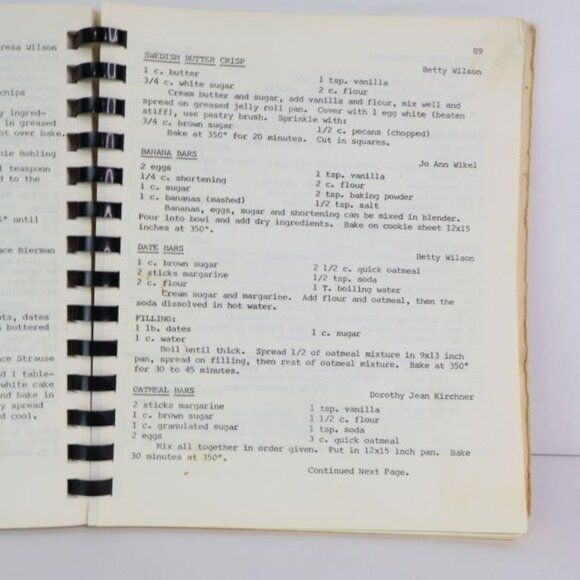 resa Wilson
chips
y ingred-
in greased
ot over bake.
nie Bohling
l teaspoon
d to the
5" until
ce Bierman
uts, dates
buttered
ce Strause
d 1 table-
white cake
nd bake in
y spread
d cool.
89
SWEDISH BUTTER CRISP
Betty Wilson
1 c. butter 1 tsp. vanilla
3/4 c. white sugar 2 c. flour
Cream butter and sugar, add vanilla and flour, mix well and
spread on greased jelly roll pan. Cover with 1 egg white (beaten
stiff), use pastry brush. Sprinkle with:
3/4 c. brown sugar 1/2 c. pecans (chopped)
Bake at 350° for 20 minutes. Cut in squares.
BANANA BARS
Jo Ann Wikel
2 eggs 1 tsp. vanilla
1/4 c. shortening 2 c. flour
1 c. sugar 2 tsp. baking powder
1 c. bananas (mashed) 1/2 tsp. salt
Bananas, eggs, sugar and shortening can be mixed in blender.
Pour into bowl and add dry ingredients. Bake on cookie sheet 12x15
inches at 350°.
DATE BARS
Betty Wilson
1 c. brown sugar 2 1/2 c. quick oatmeal
2 sticks margarine 1/2 tsp. soda
2 c. flour 1 T. boiling water
Cream sugar and margarine. Add flour and oatmeal, then the
soda dissolved in hot water.
FILLING:
1 lb. dates 1 c. sugar
1 c. water
Boil until thick. Spread 1/2 of oatmeal mixture in 9x13 inch
pan, spread on filling, then rest of oatmeal mixture. Bake at 350°
for 30 to 45 minutes.
OATMEAL BARS
Dorothy Jean Kirchner
2 sticks margarine 1 tsp. vanilla
1 c. brown sugar 1 1/2 c. flour
1 c. granulated sugar 1 tsp. soda
2 eggs 3 c. quick oatmeal
Mix all together in order given. Put in 12x15 inch pan. Bake
30 minutes at 350°.
Continued Next Page.